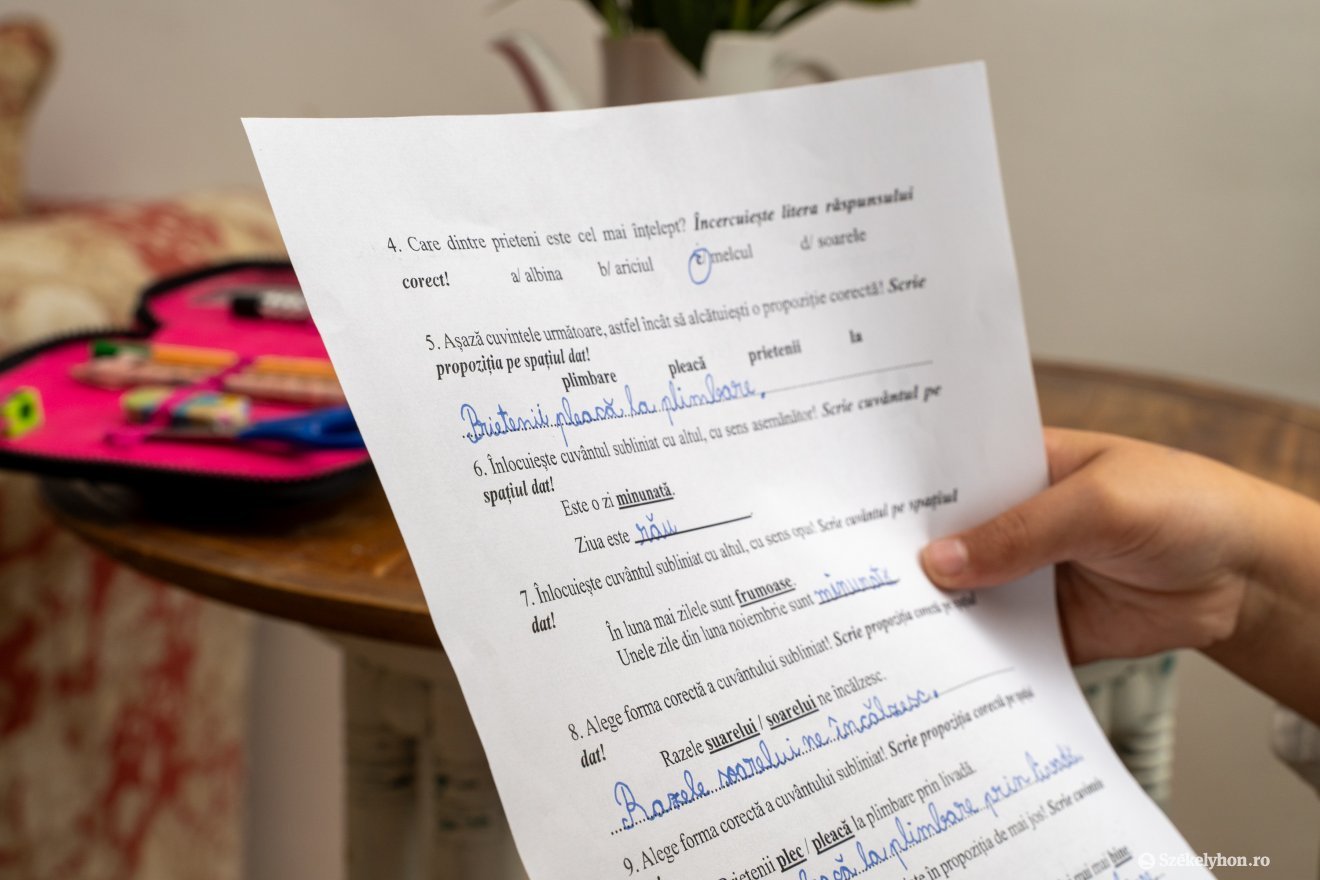 4. Care dintre prieteni este cel mai înțelept? Încercuiește litera răspunsului
corect! a/ albina b/ ariciul c/ melcul d/ soarele
5. Așază cuvintele următoare, astfel încât să alcătuiești o propoziție corectă! Scrie
propoziția pe spațiul dat!
plimbare pleacă prietenii la
Prietenii pleacă la plimbare.
6. Înlocuiește cuvântul subliniat cu altul, cu sens asemănător! Scrie cuvântul pe
spațiul dat!
Este o zi minunată.
Ziua este rău.
7. Înlocuiește cuvântul subliniat cu altul, cu sens opus! Scrie cuvântul pe spațiul
dat!
În luna mai zilele sunt frumoase.
Unele zile din luna noiembrie sunt minunate.
8. Alege forma corectă a cuvântului subliniat! Scrie propoziția corectă pe spațiul
dat!
Razele suarelui / soarelui ne încălzesc.
Razele soarelui ne încălzesc.
9. Alege forma corectă a cuvântului subliniat! Scrie propoziția corectă pe spațiul
Prietenii plec / pleacă la plimbare prin livadă.
la plimbare prin livadă
în propoziția de mai jos! Scrie
mai bine
Székelyhon.ro